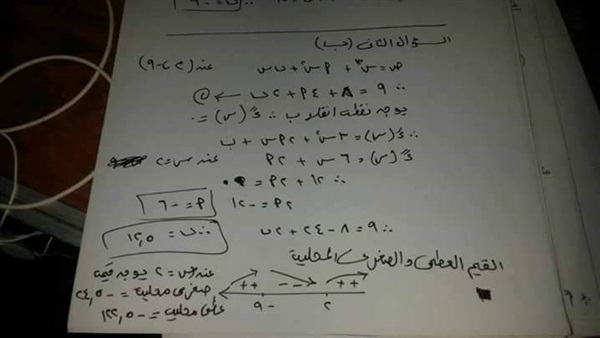 السؤال الثانى (ب)
ص = س٣ + م س٢ + ن س عند (٢، ٩)
٩ = ٨ + ٤م + ٢ن
يوجد نقطة انقلاب ∴ د″(س) = ٠
∴ د′(س) = ٣س٢ + ٢م س + ب
د″(س) = ٦س + ٢م عند س = ٢
∴ ١٢ + ٢م = ٠
٢م = -١٢ م = -٦
∴ ٩ = ٨ - ٢٤ + ٢ن ∴ ن = ١٢,٥
القيم العظمى والصغرى المحلية
عند س = ٢ يوجد قيمة
صغرى محلية = -٢٤,٥
++ -- ++
عظمى محلية = -١٢٢,٥
-٩ ٢